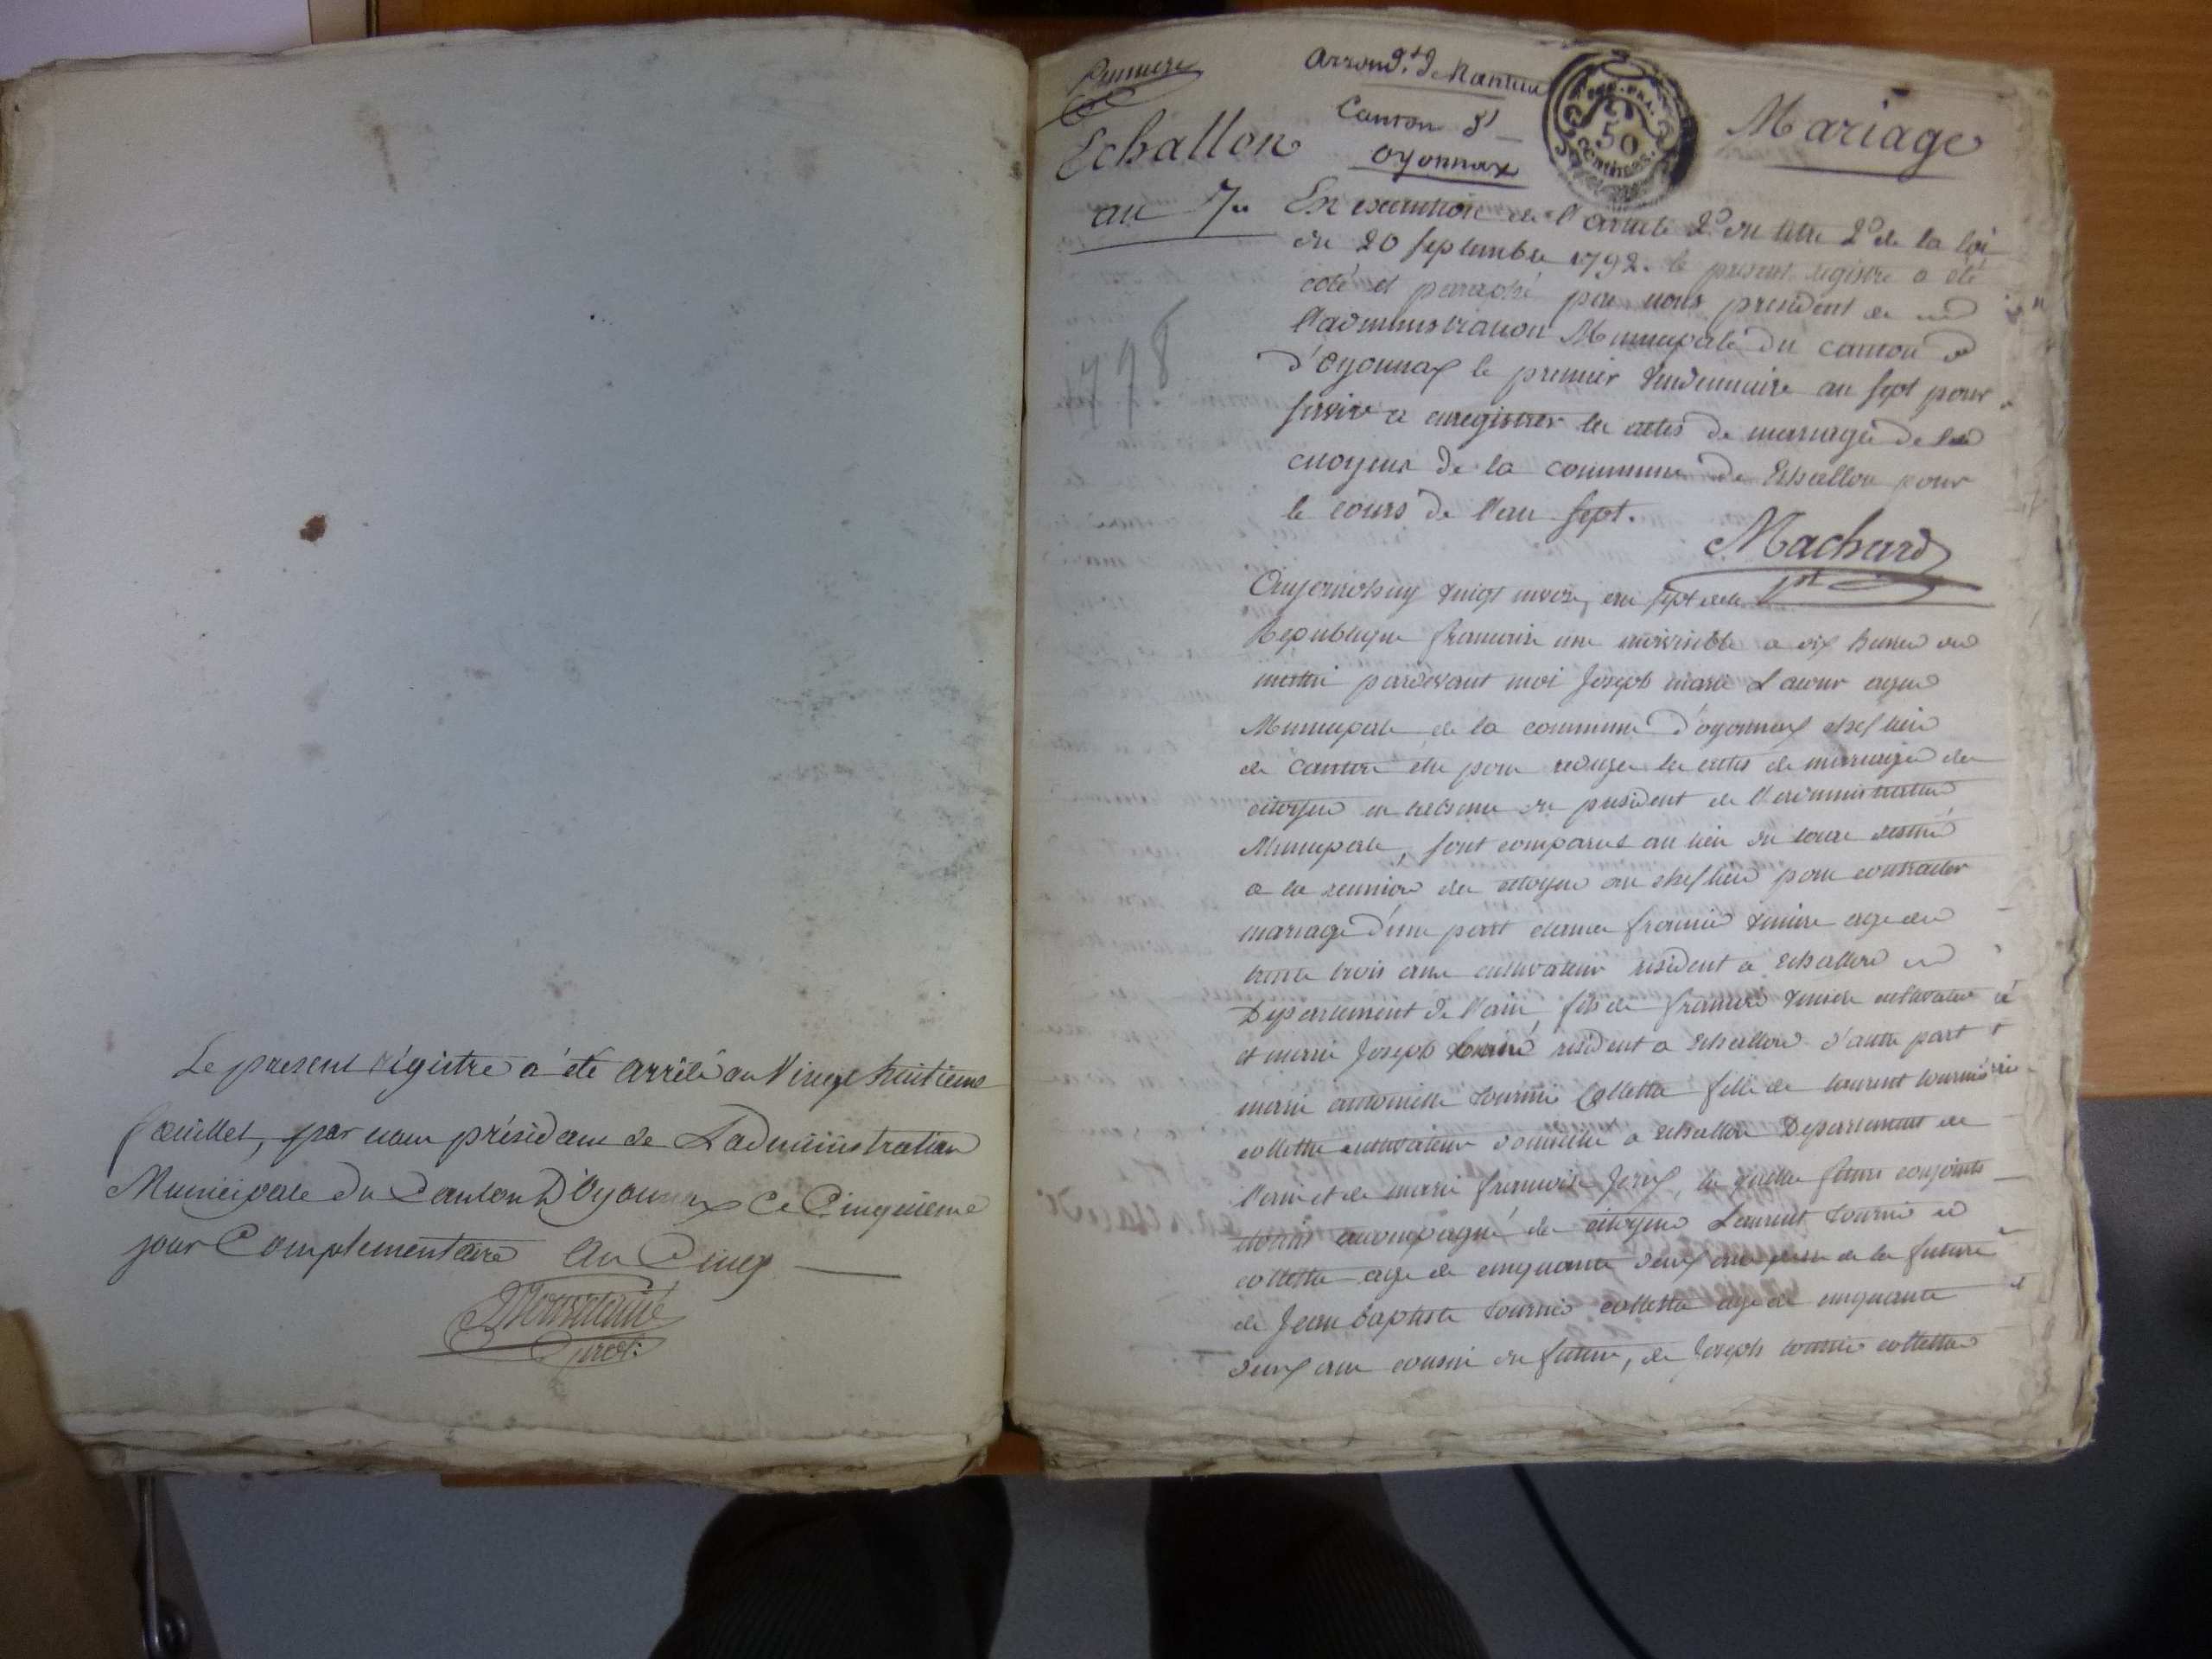 Le present régistre a été arrêté au Vingt huitieme
feuillet, par nous présidant de L'administration
Municipale du Canton D'Oyonnax Ce Cinquieme
jour Complementaire An Cinq
presd.
premiere
Echallon
an 7e
Arrond.t de Nantua
Canton d'
Oyonnax
50
centimes.
Mariage
1798
En execution de l'article 2e du titre 2e de la loi
du 20 septembre 1792. le present registre a été
coté et paraphé par nous president de
l'administration Municipale du canton
d'Oyonnax le premier vendemiaire an sept pour
servir a enregistrer les actes de mariage de
citoyens de la commune de Echallon pour
le cours de l'an sept.
Machard
pt
Aujourdhuy vingt nivose, an sept de la
Republique francaise une indivisible a dix heures du
matin pardevant moi Joseph marie Lacour agent
Municipale de la commune d'oyonnax chef lieu
de canton élu pour rediger les actes de mariage des
citoyens en absence du president de l'administration
Municipale, sont comparus au lieu du local destiné
a la reunion des citoyens au chef lieu pour contracter
mariage d'une part francois age de
trente trois ans cultivateur resident a Echallon
Departement de l'ain fils de francois cultivateur
et marie Joseph resident a Echallon d'autre part
marie antoinette tournié Colletta fille de laurent tournié
colletta cultivateur domicilié a Echallon Departement de
l'ain et de marie francoise les quels futurs conjoints
etoient accompagné des citoyens Laurent tournié
colletta age de cinquante deux ans pere de la future
de Jean baptiste tournié colletta age de cinquante
deux ans cousin du future, de Joseph tournié colletta